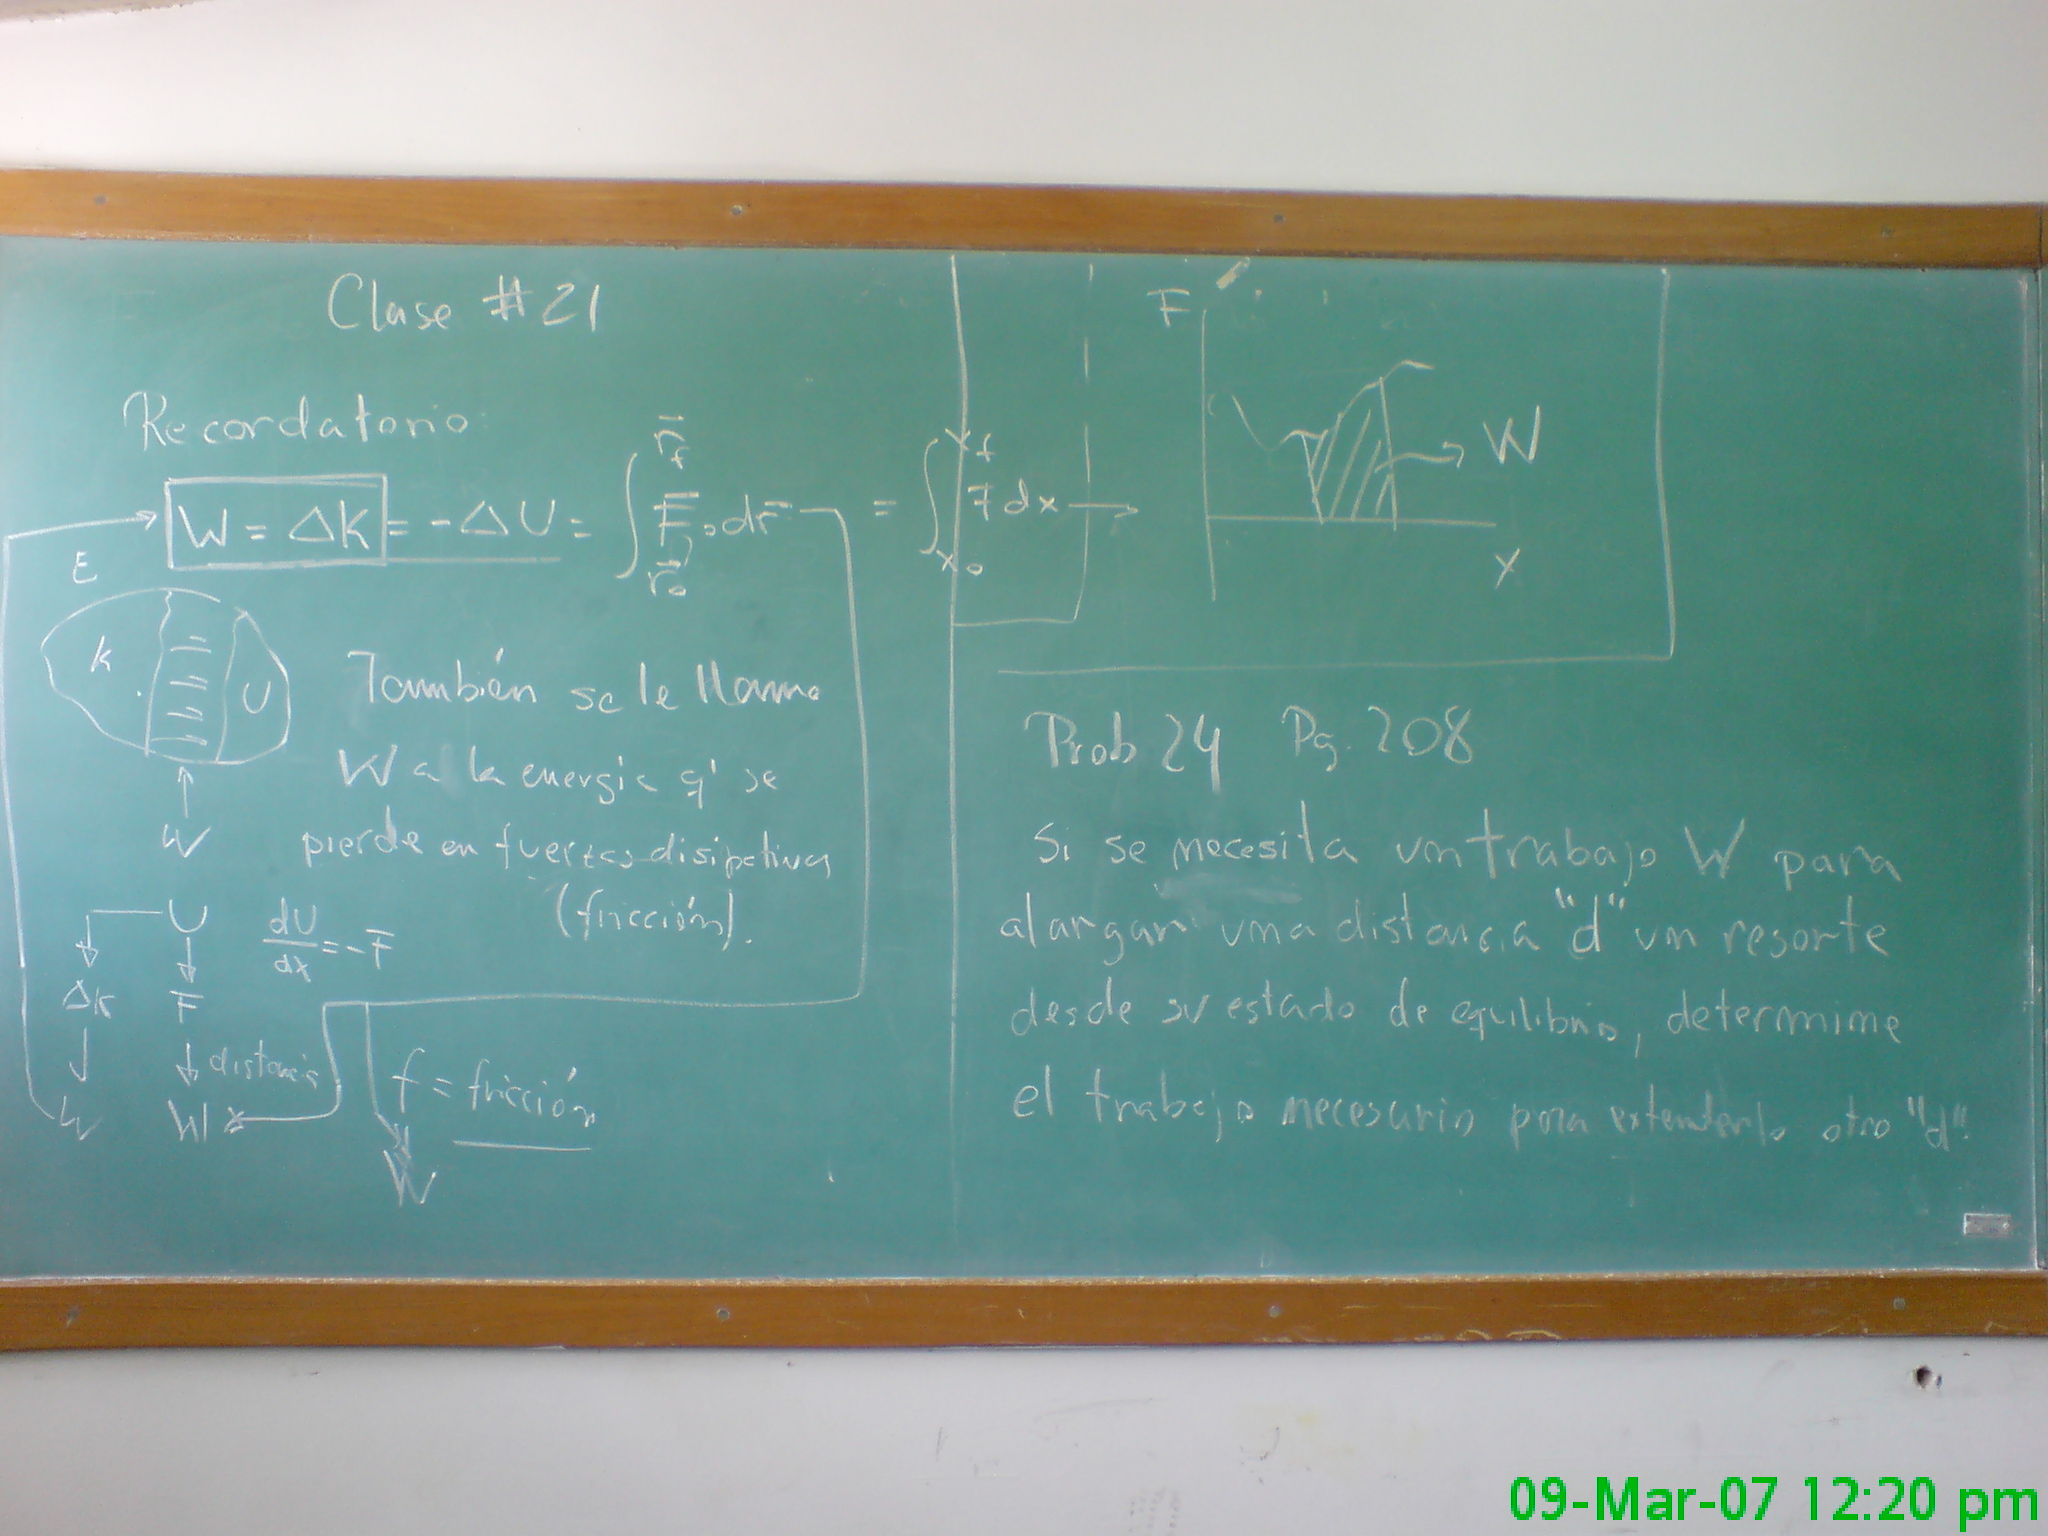 Clase #21
Recordatorio:
W = ΔK = -ΔU = ∫ r⃗f r⃗o F⃗ · dr⃗ = ∫ xf xo F dx
E
K
U
W
También se le llama
W a la energia q' se
pierde en fuerzas disipativas
(fricción).
U
dU/dx = -F
ΔK
F
distancia
W
W
f = fricción
W
F
W
X
Prob 24 Pg. 208
Si se necesita un trabajo W para
alargar una distancia "d" un resorte
desde su estado de equilibrio, determine
el trabajo necesario para extenderlo otro "d".
09-Mar-07 12:20 pm